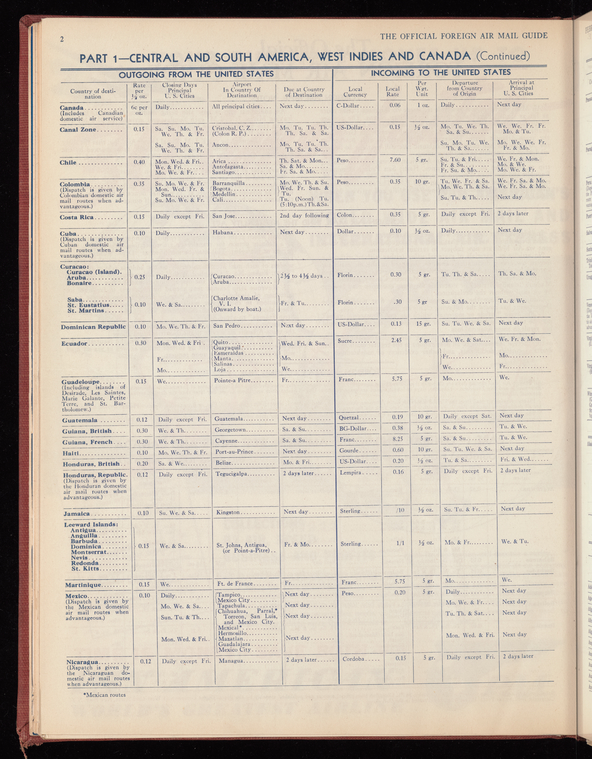 2
THE OFFICIAL FOREIGN AIR MAIL GUIDE
PART 1—CENTRAL AND SOUTH AMERICA, WEST INDIES AND CANADA (Continued)
OUTGOING FROM THE UNITED STATES
INCOMING TO THE UNITED STATES
Country of desti-
nation
Rate
per
½ oz.
Closing Days
Principal
U. S. Cities
Airport
In Country Of
Destination
Due at Country
of Destination
Local
Currency
Local
Rate
Per
Wgt.
Unit
Departure
from Country
of Origin
Arrival at
Principal
U. S. Cities
Canada 6c per Daily All principal cities Next day C-Dollar 0.06 1 oz. Daily Next day
(Includes Canadian oz.
domestic air service)
Canal Zone 0.15 Su. Su. Mo. Tu. Cristobal, C. Z. Mo. Tu. Tu. Th. US-Dollar 0.15 ½ oz. Mo. Tu. We. Th. We. We. Fr. Fr.
We. Th. Fr. (Colon R. P.) Th. Sa. Su. Sa. & Su. Mo. & Tu.
Su. Su. Mo. Tu. Ancon Mo. Tu. Tu. Th. Su. Mo. Tu. We. Mo. We. We. Fr.
We. Th. Fr. Th. Sa. & Sa. Th. & Sa. Fr. & Mo.
Chile 0.40 Mon. Wed. & Fri. Arica Th. Sat. & Mon. Peso 7.60 5 gr. Su. Tu. & Fri. We. Fr. & Mon.
We. & Fri. Antofagasta Sa. & Mo. Fr. & Su. Mo. & We.
Mo. We. & Fr. Santiago Fr. Sa. & Mo. Fr. Su. & Mo. Mo. We. & Fr.
Colombia 0.35 Su. Mo. We. & Fr. Barranquilla Mo. We. Th. & Sa. Peso 0.35 10 gr. Tu. We. Fr. & Sa. We. Fr. Sa. & Mo.
(Dispatch is given by Mon. Wed. Fr. & Bogota We. Fri. Sun. & Mo. We. Th. & Sa. We. Fr. Sa. & Mo.
Colombian domestic air Sun. Medellin Tu.
mail routes when ad- Su. Mo. We. & Fr. Cali Tu. (Noon) Tu. Su. Tu. & Th. Next day
vantageous.) (5:10p.m.) Th. & Sa.
Costa Rica 0.15 Daily except Fri. San Jose 2nd day following Colon 0.35 5 gr. Daily except Fri. 2 days later
Cuba 0.10 Daily Habana Next day Dollar 0.10 ½ oz. Daily Next day
(Dispatch is given by
Cuban domestic air
mail routes when ad-
vantageous.)
Curacao:
Curacao (Island).
Aruba 0.25 Daily Curacao 2½ to 4½ days Florin 0.30 5 gr. Tu. Th. & Sa. Th. Sa. & Mo.
Bonaire Aruba
Saba Charlotte Amalie,
St. Eustatius 0.10 We. & Sa. V. I. Fr. & Tu. Florin .30 5 gr Sa. & Mo. Tu. & We.
St. Martins (Onward by boat.)
Dominican Republic 0.10 Mo. We. Th. & Fr. San Pedro Next day US-Dollar 0.13 15 gr. Su. Tu. We. & Sa. Next day
Ecuador 0.30 Mon. Wed. & Fri. Quito Wed. Fri. & Sun. Sucre 2.45 5 gr. Mo. We. & Sat. We. Fr. & Mon.
Guayaquil
Esmeraldas
Fr. Manta Mo. Fr. Mo.
Salinas
Mo. Loja We. We. Fr.
Guadeloupe 0.15 We. Pointe-a Pitre Fr. Franc 5.75 5 gr. Mo. We.
(Including islands of
Desirade, Les Saintes,
Marie Galante, Petite
Terre, and St. Bar-
tholomew.)
Guatemala 0.12 Daily except Fri. Guatemala Next day Quetzal 0.19 10 gr. Daily except Sat. Next day
Guiana, British 0.30 We. & Th. Georgetown Sa. & Su. BG-Dollar 0.38 ½ oz. Sa. & Su. Tu. & We.
Guiana, French 0.30 We. & Th. Cayenne Sa. & Su. Franc 8.25 5 gr. Sa. & Su. Tu. & We.
Haiti 0.10 Mo. We. Th. & Fr. Port-au-Prince Next day Gourde 0.60 10 gr. Su. Tu. We. & Sa. Next day
Honduras, British 0.20 Sa. & We. Belize Mo. & Fri. US-Dollar 0.20 ½ oz. Tu. & Sa. Fri. & Wed.
Honduras, Republic 0.12 Daily except Fri. Tegucigalpa 2 days later Lempira 0.16 5 gr. Daily except Fri. 2 days later
(Dispatch is given by
the Honduran domestic
air mail routes when
advantageous.)
Jamaica 0.10 Su. We. & Sa. Kingston Next day Sterling /10 ½ oz. Su. Tu. & Fr. Next day
Leeward Islands:
Antigua
Anguilla
Barbuda
Dominica 0.15 We. & Sa. St. Johns, Antigua, Fr. & Mo. Sterling 1/1 ½ oz. Mo. & Fr. We. & Tu.
Montserrat (or Point-a-Pitre)
Nevis
Redonda
St. Kitts
Martinique 0.15 We. Ft. de France Fr. Franc 5.75 5 gr. Mo. We.
Mexico 0.10 Daily Tampico Next day Peso 0.20 5 gr. Daily Next day
(Dispatch is given by Mexico City
the Mexican domestic Mo. We. & Sa. Tapachula Next day Mo. We. & Fr. Next day
air mail routes when Sun. Tu. & Th. Chihuahua, Parral,* Next day Tu. Th. & Sat. Next day
advantageous.) Torreon, San Luis,
and Mexico City.
Mexical*
Hermosillo
Mon. Wed. & Fri. Mazatlan Next day Mon. Wed. & Fri. Next day
Guadalajara
Mexico City
Nicaragua 0.12 Daily except Fri. Managua 2 days later Cordoba 0.15 5 gr. Daily except Fri. 2 days later
(Dispatch is given by
the Nicaraguan do-
mestic air mail routes
when advantageous.)
*Mexican routes